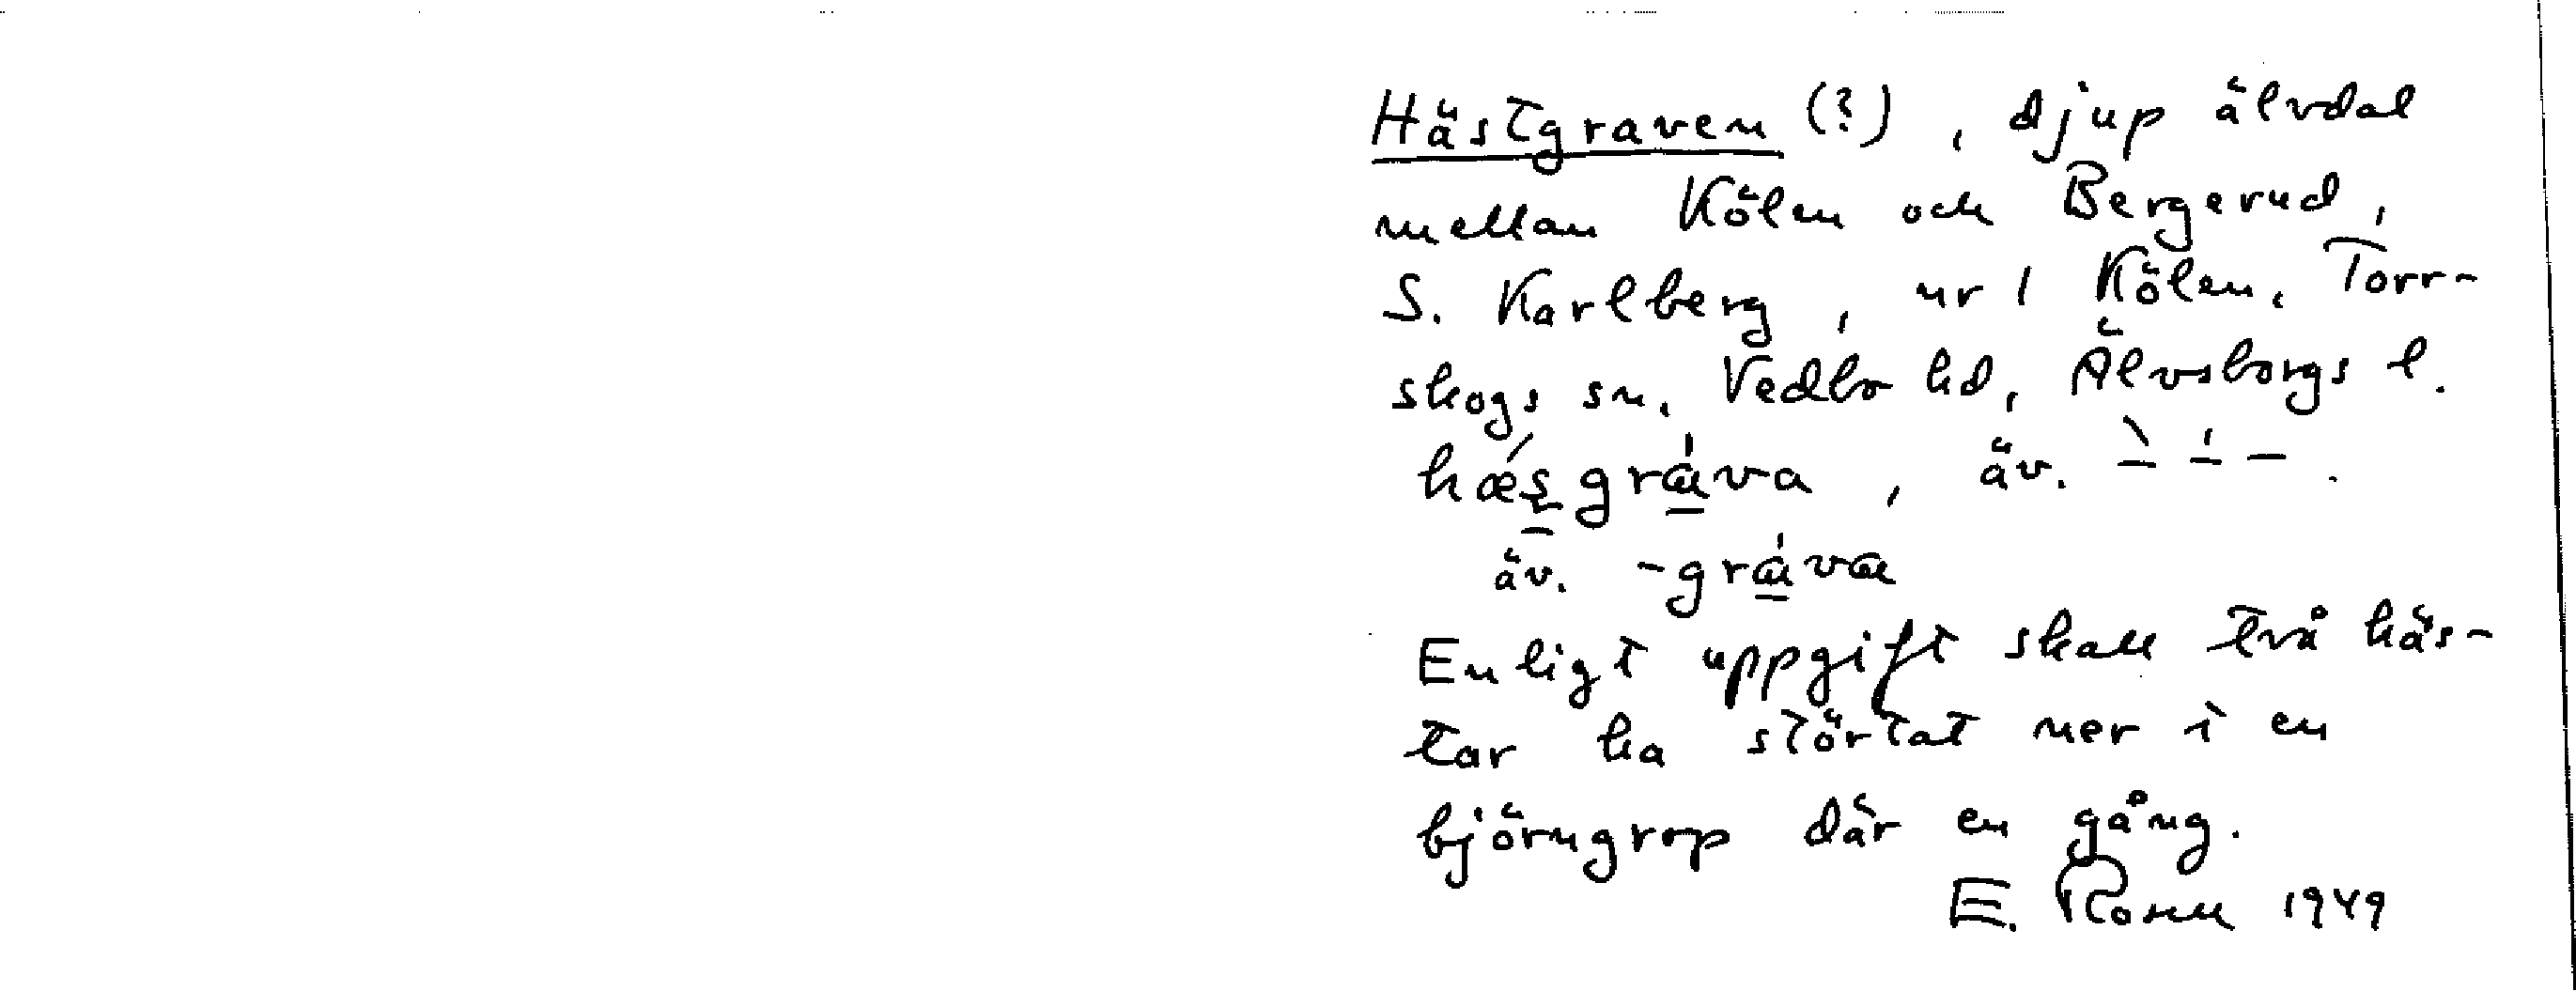 Hästgraven (?), djup älvdal
mellan Kölen och Bergerud,
S. Karlberg, nr 1 Kölen, Torr-
skogs sn, Vedbo hd, Älvsborgs l.
äv.
äv. -gráva
Enligt uppgift skall två häs-
tar ha störtat ner i en
björngrop där en gång.
E. Rosell 1949